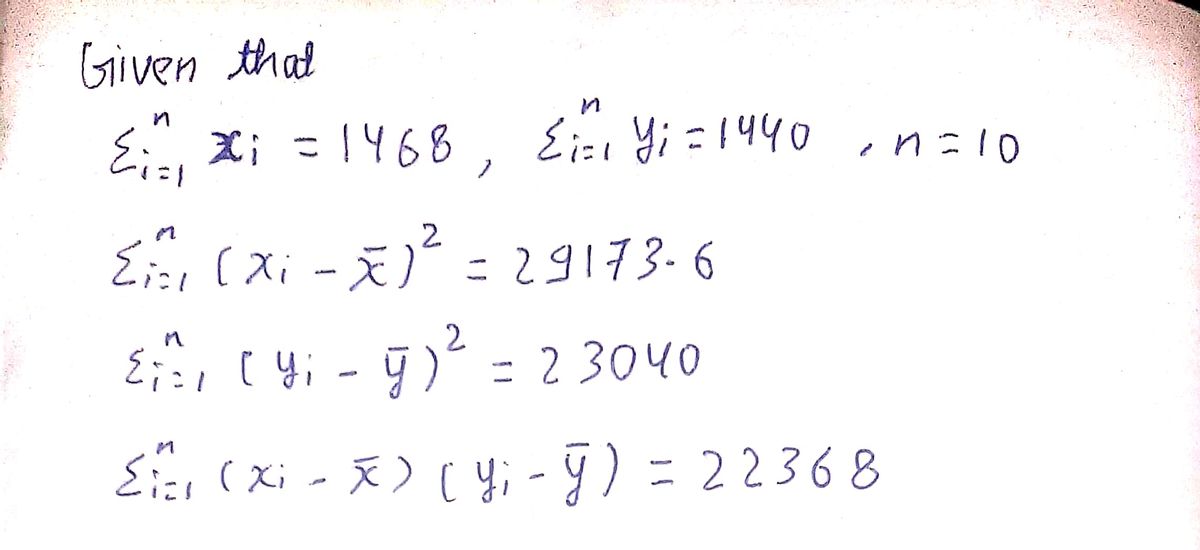 Given that
Σᵢ₌₁ⁿ xᵢ = 1468, Σᵢ₌₁ⁿ yᵢ = 1440, n = 10
Σᵢ₌₁ⁿ (xᵢ - x̄)² = 29173.6
Σᵢ₌₁ⁿ (yᵢ - ȳ)² = 23040
Σᵢ₌₁ⁿ (xᵢ - x̄) (yᵢ - ȳ) = 22368